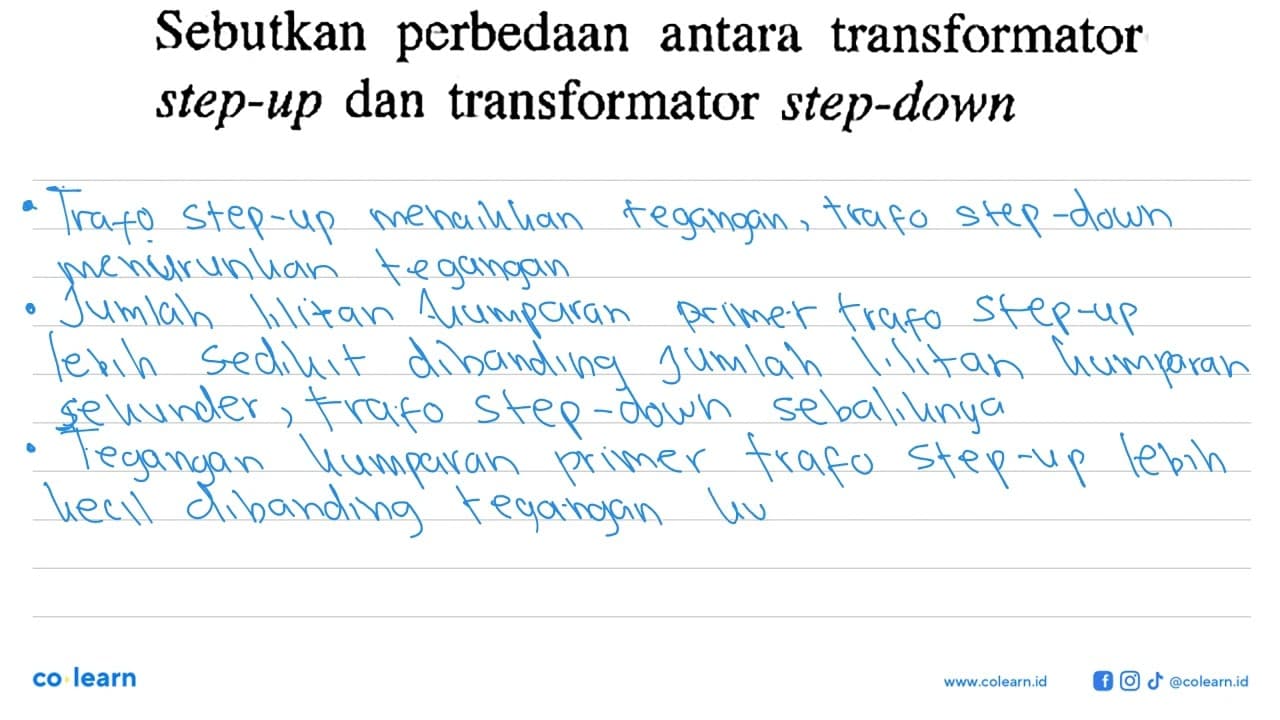 Sebutkan perbedaan antara transformator
step-up dan transformator step-down
• Trafo step-up menaikkan tegangan, trafo step-down
menurunkan tegangan
• Jumlah lilitan kumparan primer trafo step-up
lebih sedikit dibanding jumlah lilitan kumparan
sekunder, trafo step-down sebaliknya
• Tegangan kumparan primer trafo step-up lebih
kecil dibanding tegangan ku
co learn
www.colearn.id
@colearn.id